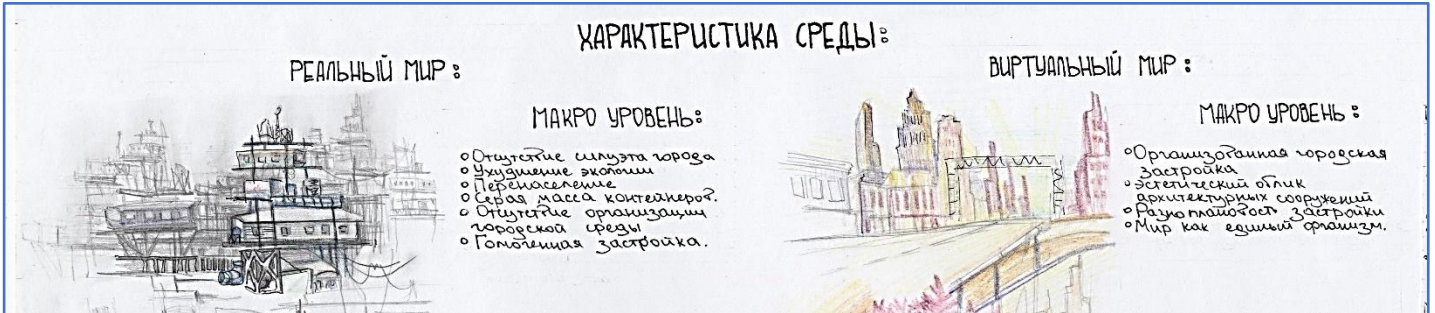 ХАРАКТЕРИСТИКА СРЕДЫ:
РЕАЛЬНЫЙ МИР:
МАКРО УРОВЕНЬ:
Отсутствие силуэта города
Ухудшение экологии
Перенаселение
Серая масса контейнеров.
Отсутствие организации
городской среды
Гомогенная застройка.
ВИРТУАЛЬНЫЙ МИР:
МАКРО УРОВЕНЬ:
Организованная городская
застройка
Эстетический облик
архитектурных сооружений
Разноплановость застройки
Мир как единый организм.